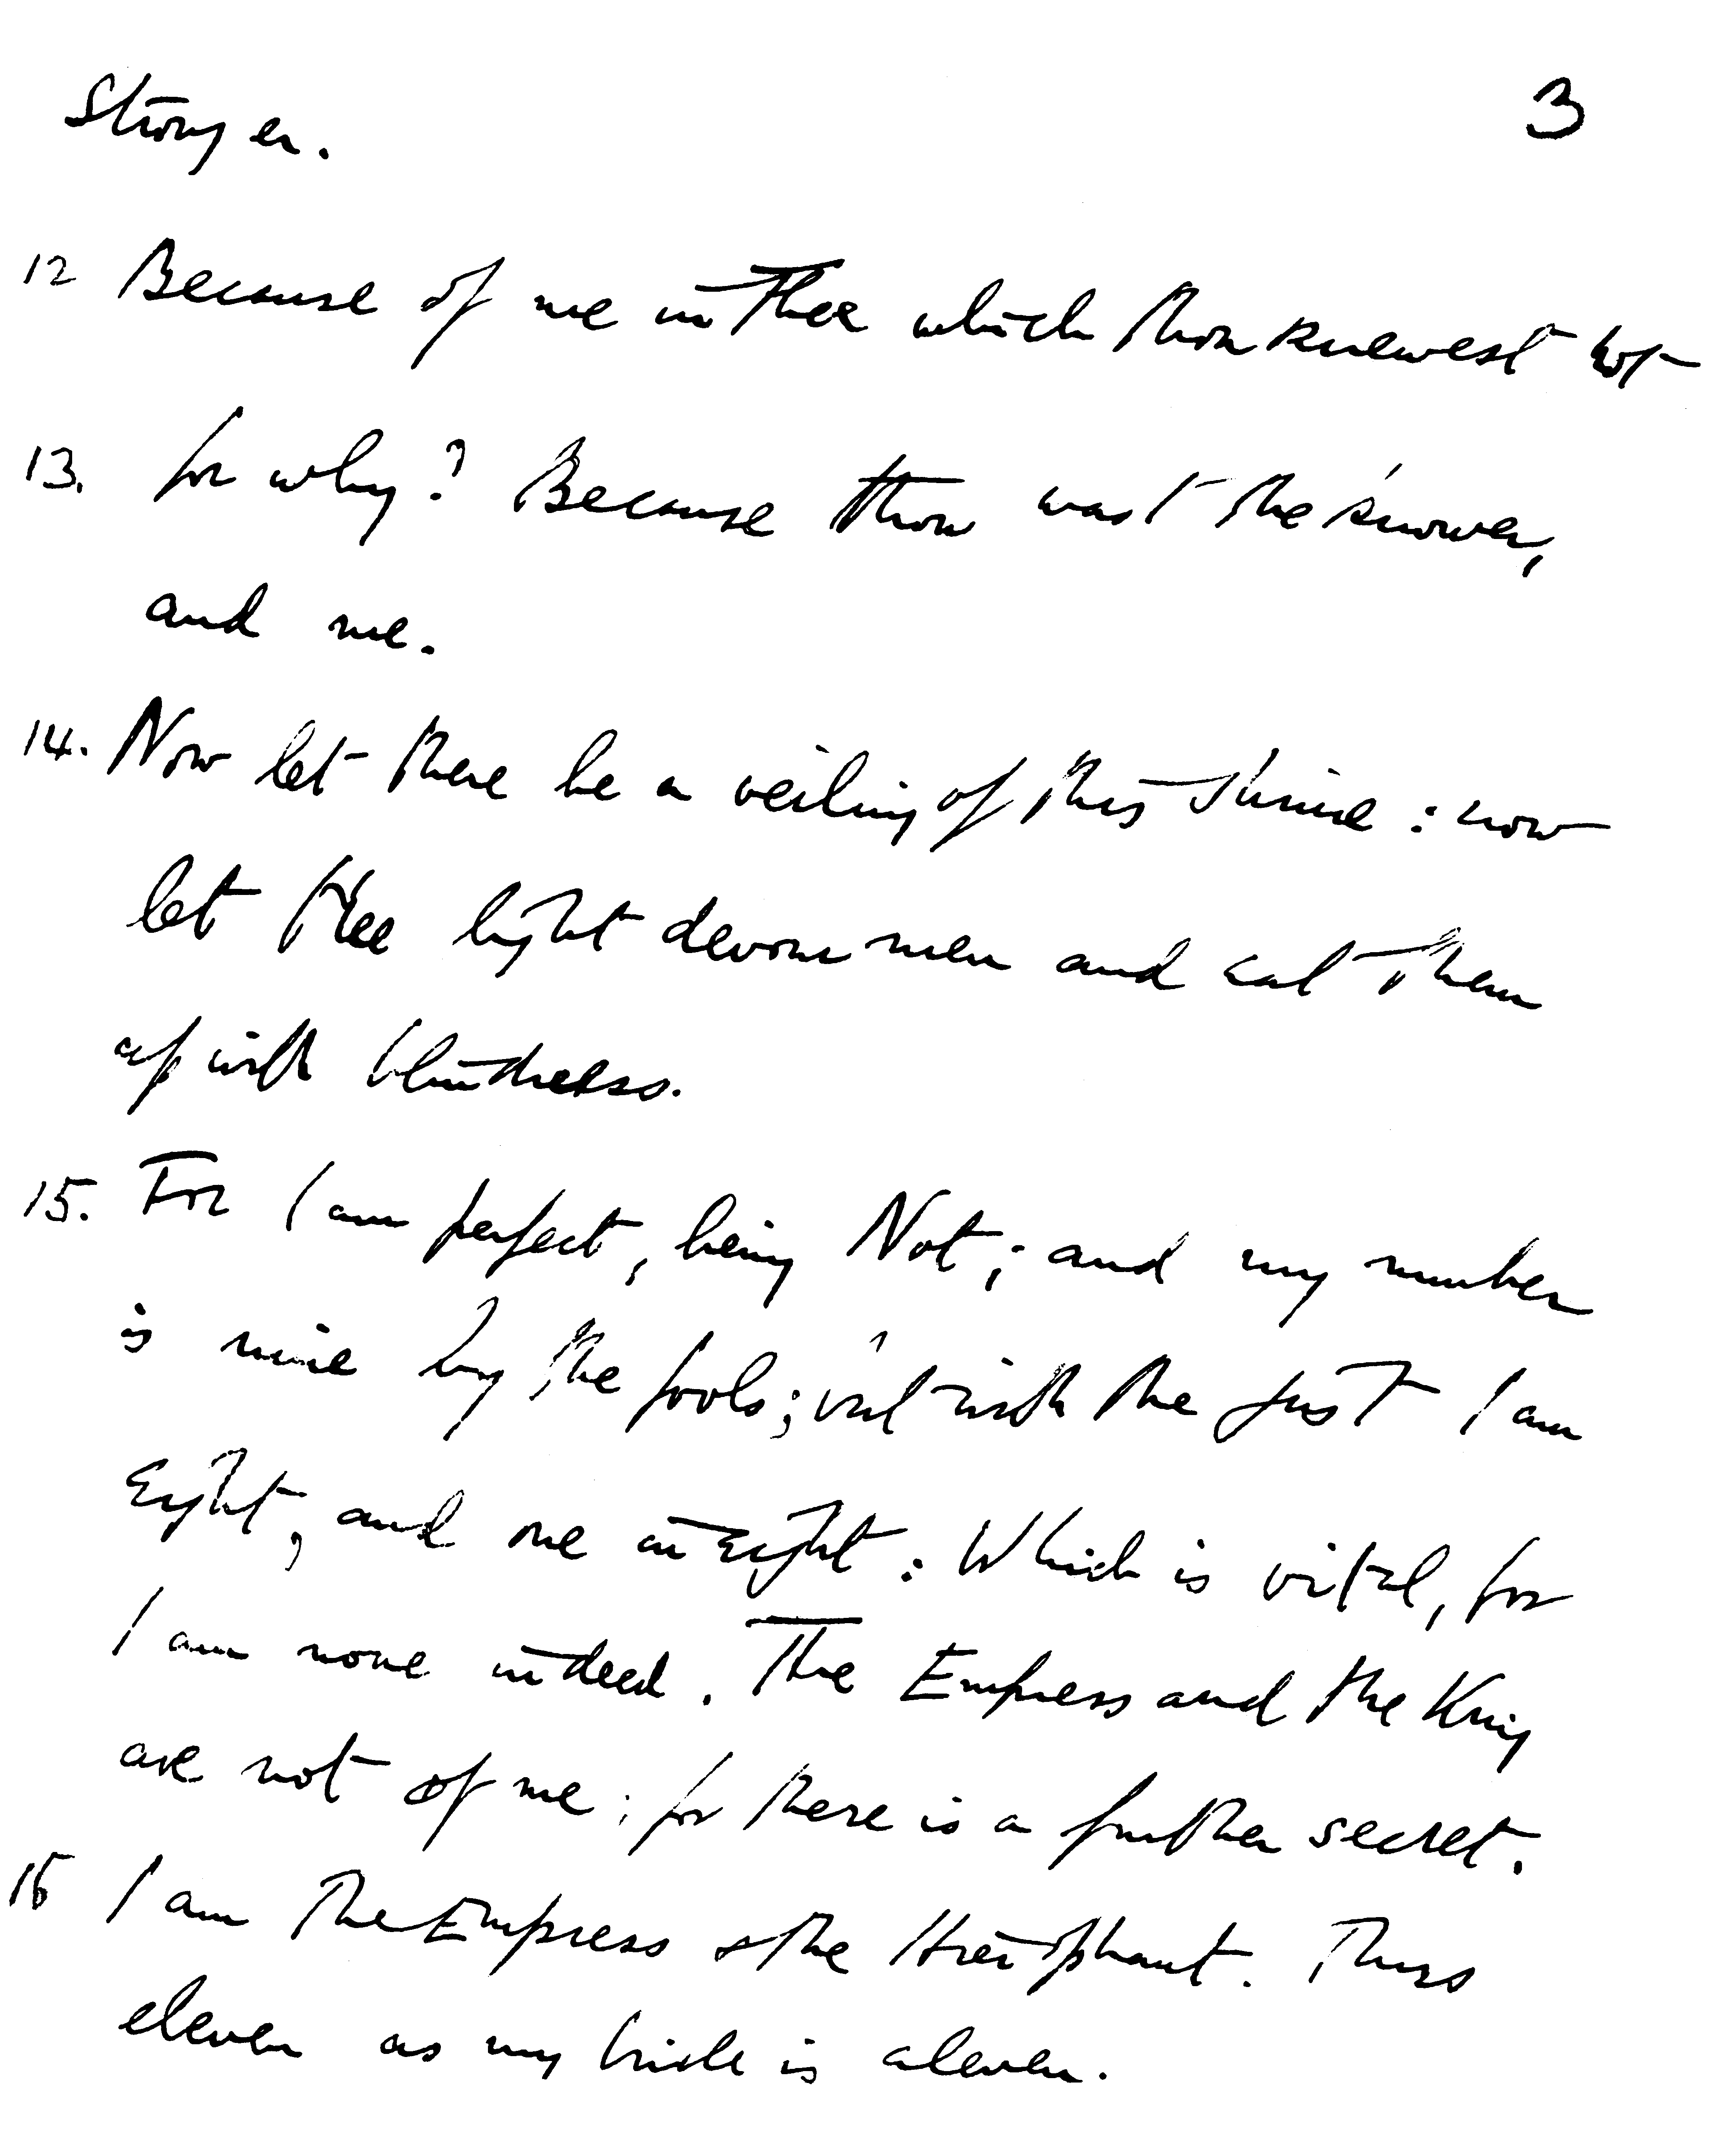 Stronger. 3
12 Because of me in Thee which thou knewest not
13. for why? Because thou wast the knower,
and me.
14. Now let there be a veiling of this shrine: now
let thee light devour men and eat them
up with blindness.
15. For I am perfect, being Not; and my number
is nine by the fools; but with the just I am
eight, and one in eight: Which is vital, for
I am none indeed. The Empress and the King
are not of me; for there is a further secret.
16 I am the Empress & the Hierophant. Thus
eleven as my bride is eleven.